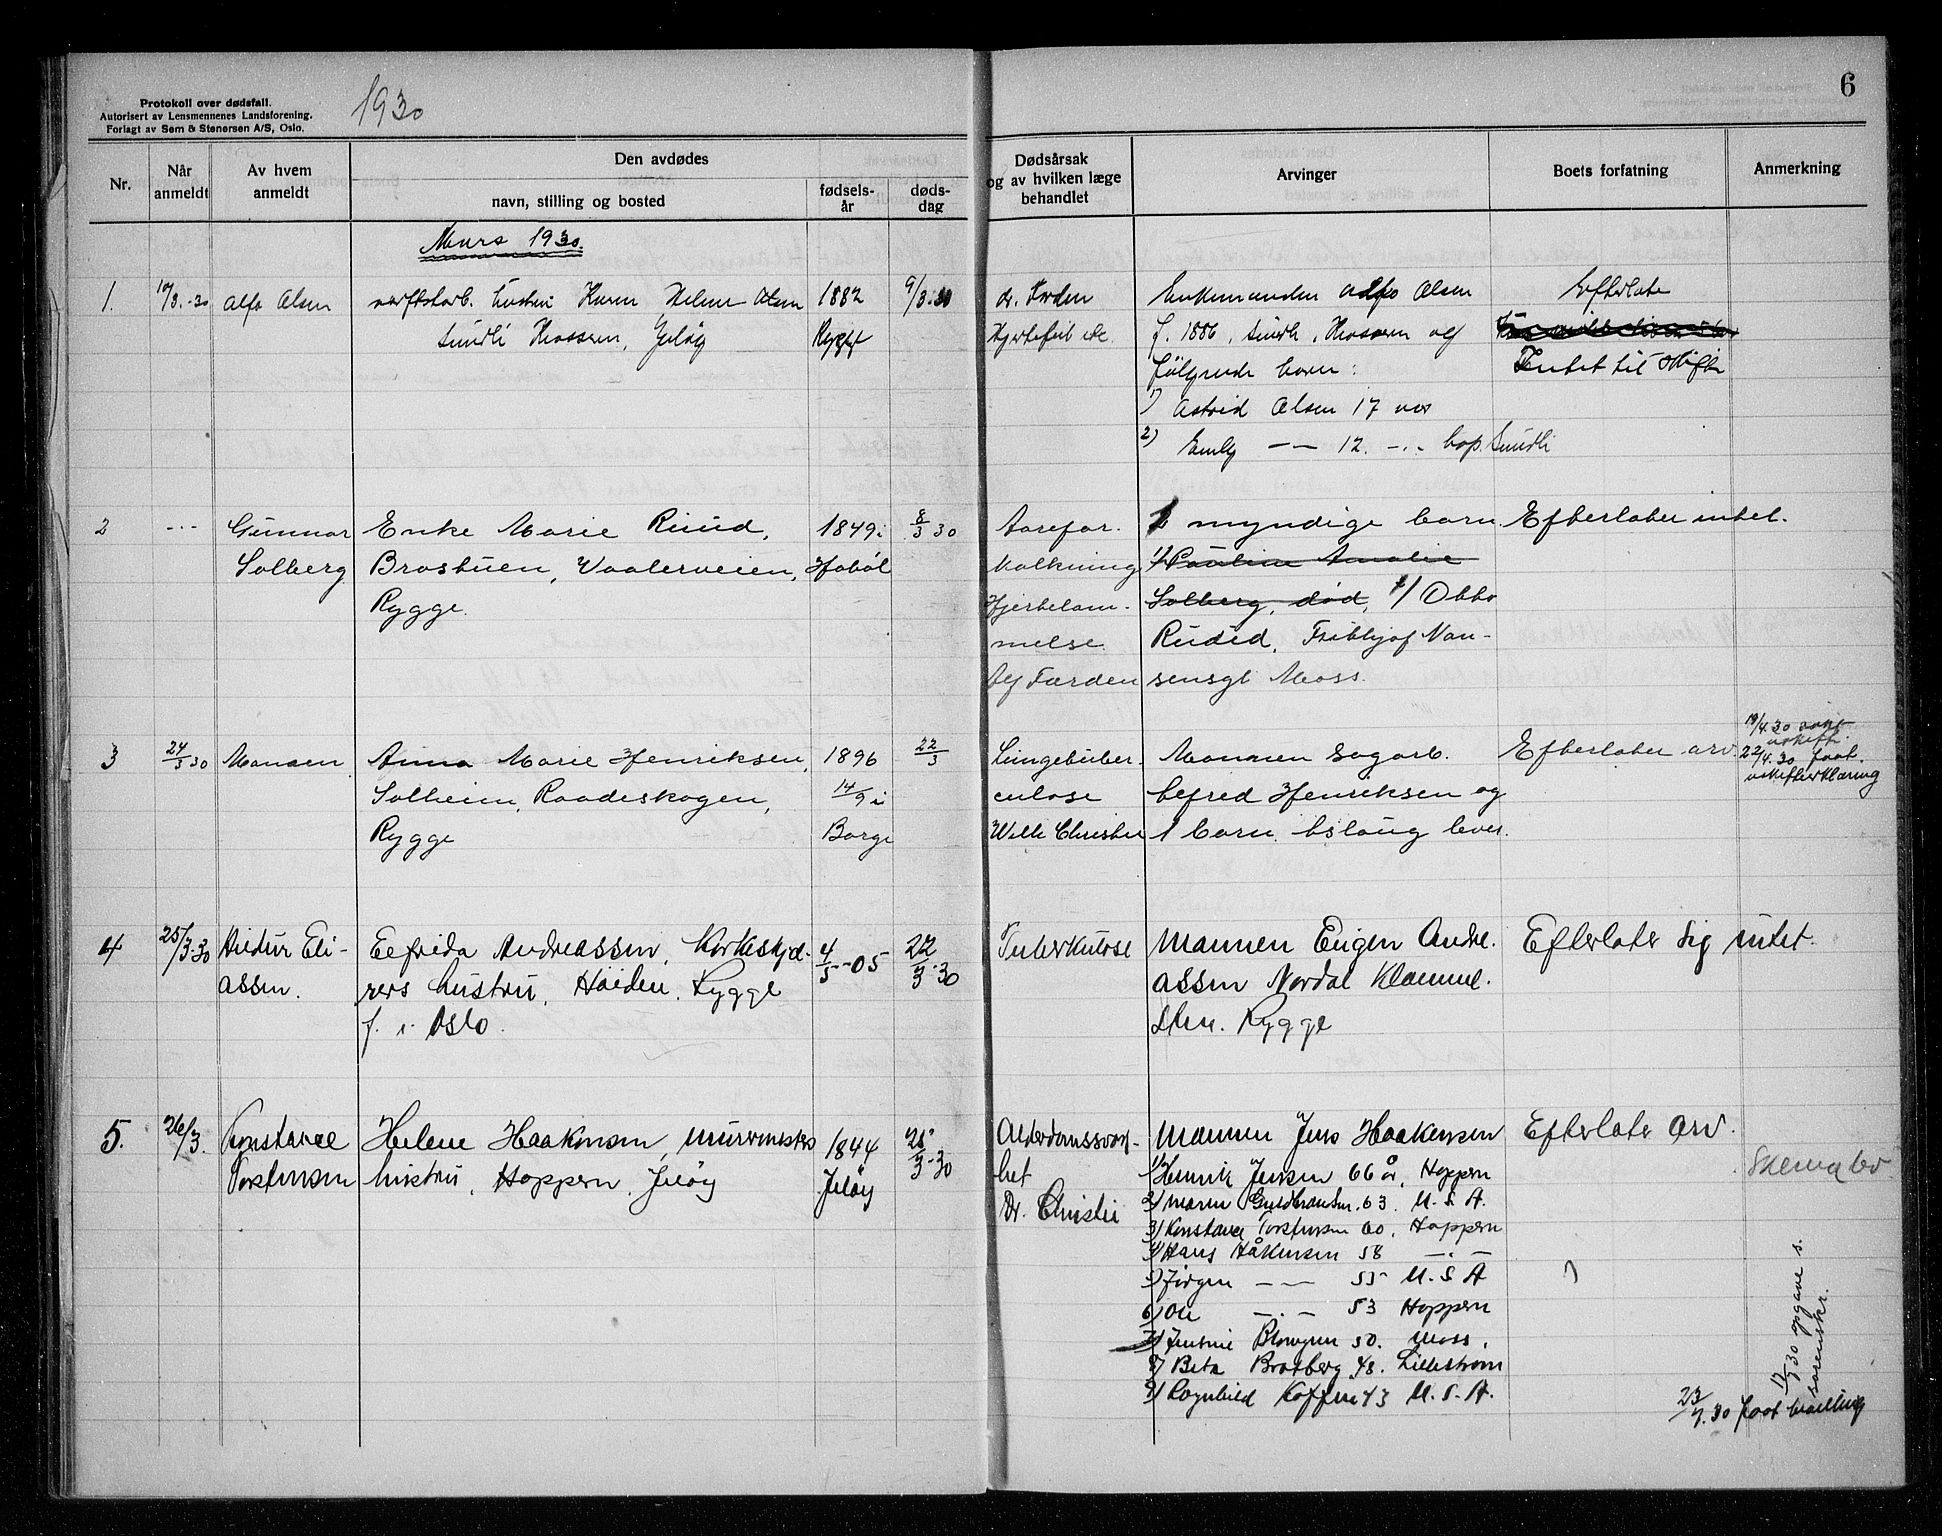 Protokoll over dødsfall.
Autorisert av Lensmennenes Landsforening.
Forlagt av Sem & Stenersen A/S, Oslo.
1930
6
Nr.
Når anmeldt
Av hvem anmeldt
Den avdødes
navn, stilling og bosted
fødsels-år
døds-dag
Dødsårsak og av hvilken læge behandlet
Arvinger
Boets forfatning
Anmerkning
Mars 1930.
1. 10/3.-30 Alfo Olsen
hustru Karen Helene Olsen
Sundli Kossern, Jeløy
1882
Rygge
9/3.30
dr. Førden
Hjertefeil
Enkemanden Alfo Olsen
f. 1886, Sundli, Kossern og
følgende barn:
1) Astrid Olsen 17 aar
2) Emly — — 12. -.- bop. Sundli
Efterlate
Intet til skifte
2 -.-
Gunnar
Solberg
Enke Marie Ruud,
Brostuen, Vaalerveien,
Rygge.
1849 i
Hobøl
8/3 30
Aarefor-
kalkning
Hjertelam-
melse.
Færden
1 myndige barn
1/ Pauline Amalie
Solberg, død, 1/ Otto
Ruud, Fridtjof Nan-
sensgt Moss.
Efterlater intet.
3 24/3 30 Mannen
Anna Marie Henriksen,
Solheim, Raadeskogen,
Rygge
1896
14/9 i
Borge
22/3
Lungetuber-
culose
Wilh Christie
Mannen sagarb.
Henriksen og
1 barn. Aslaug lever.
Efterlater arv.
19/4.30
22/4.30 faat
uskifterklæring
4 25/3.30
Eli-
assen.
Elfrida Andreassen, Korkeskjæ-
rers hustru, Høiden, Rygge
f. i Oslo.
4/5-05
22/3-30
Tuberkulose
Mannen Eugen Andre-
assen Nordal
Rygge
Efterlater sig intet.
5. 26/3. Konstance
Torstensen
Helene Haakensen, murmesters
hustru, Hoppern, Jeløy
1844
Jeløy
25/3-30
Alderdomssvak-
het
Dr. Christie
Mannen Jens Haakensen
1/ Henrik Jensen 66 år, Hoppern
2) Maren Guldbransen. 63. U. S. A.
3) Konstance Torstensen 60, Hoppern
4) Hans Håkensen 58 —.—
5) Jørgen — — 55 U. S. A
6) Ole —.— 53 Hoppern
7) Jentine 50. Moss.
8) Beta Bratberg 48. Lillestrøm
9) Ragnhild 43 U. S. A.
Efterlater arv.
Skema lev
17/7 30 opgave s.
sorenskr.
23/7.30 faat